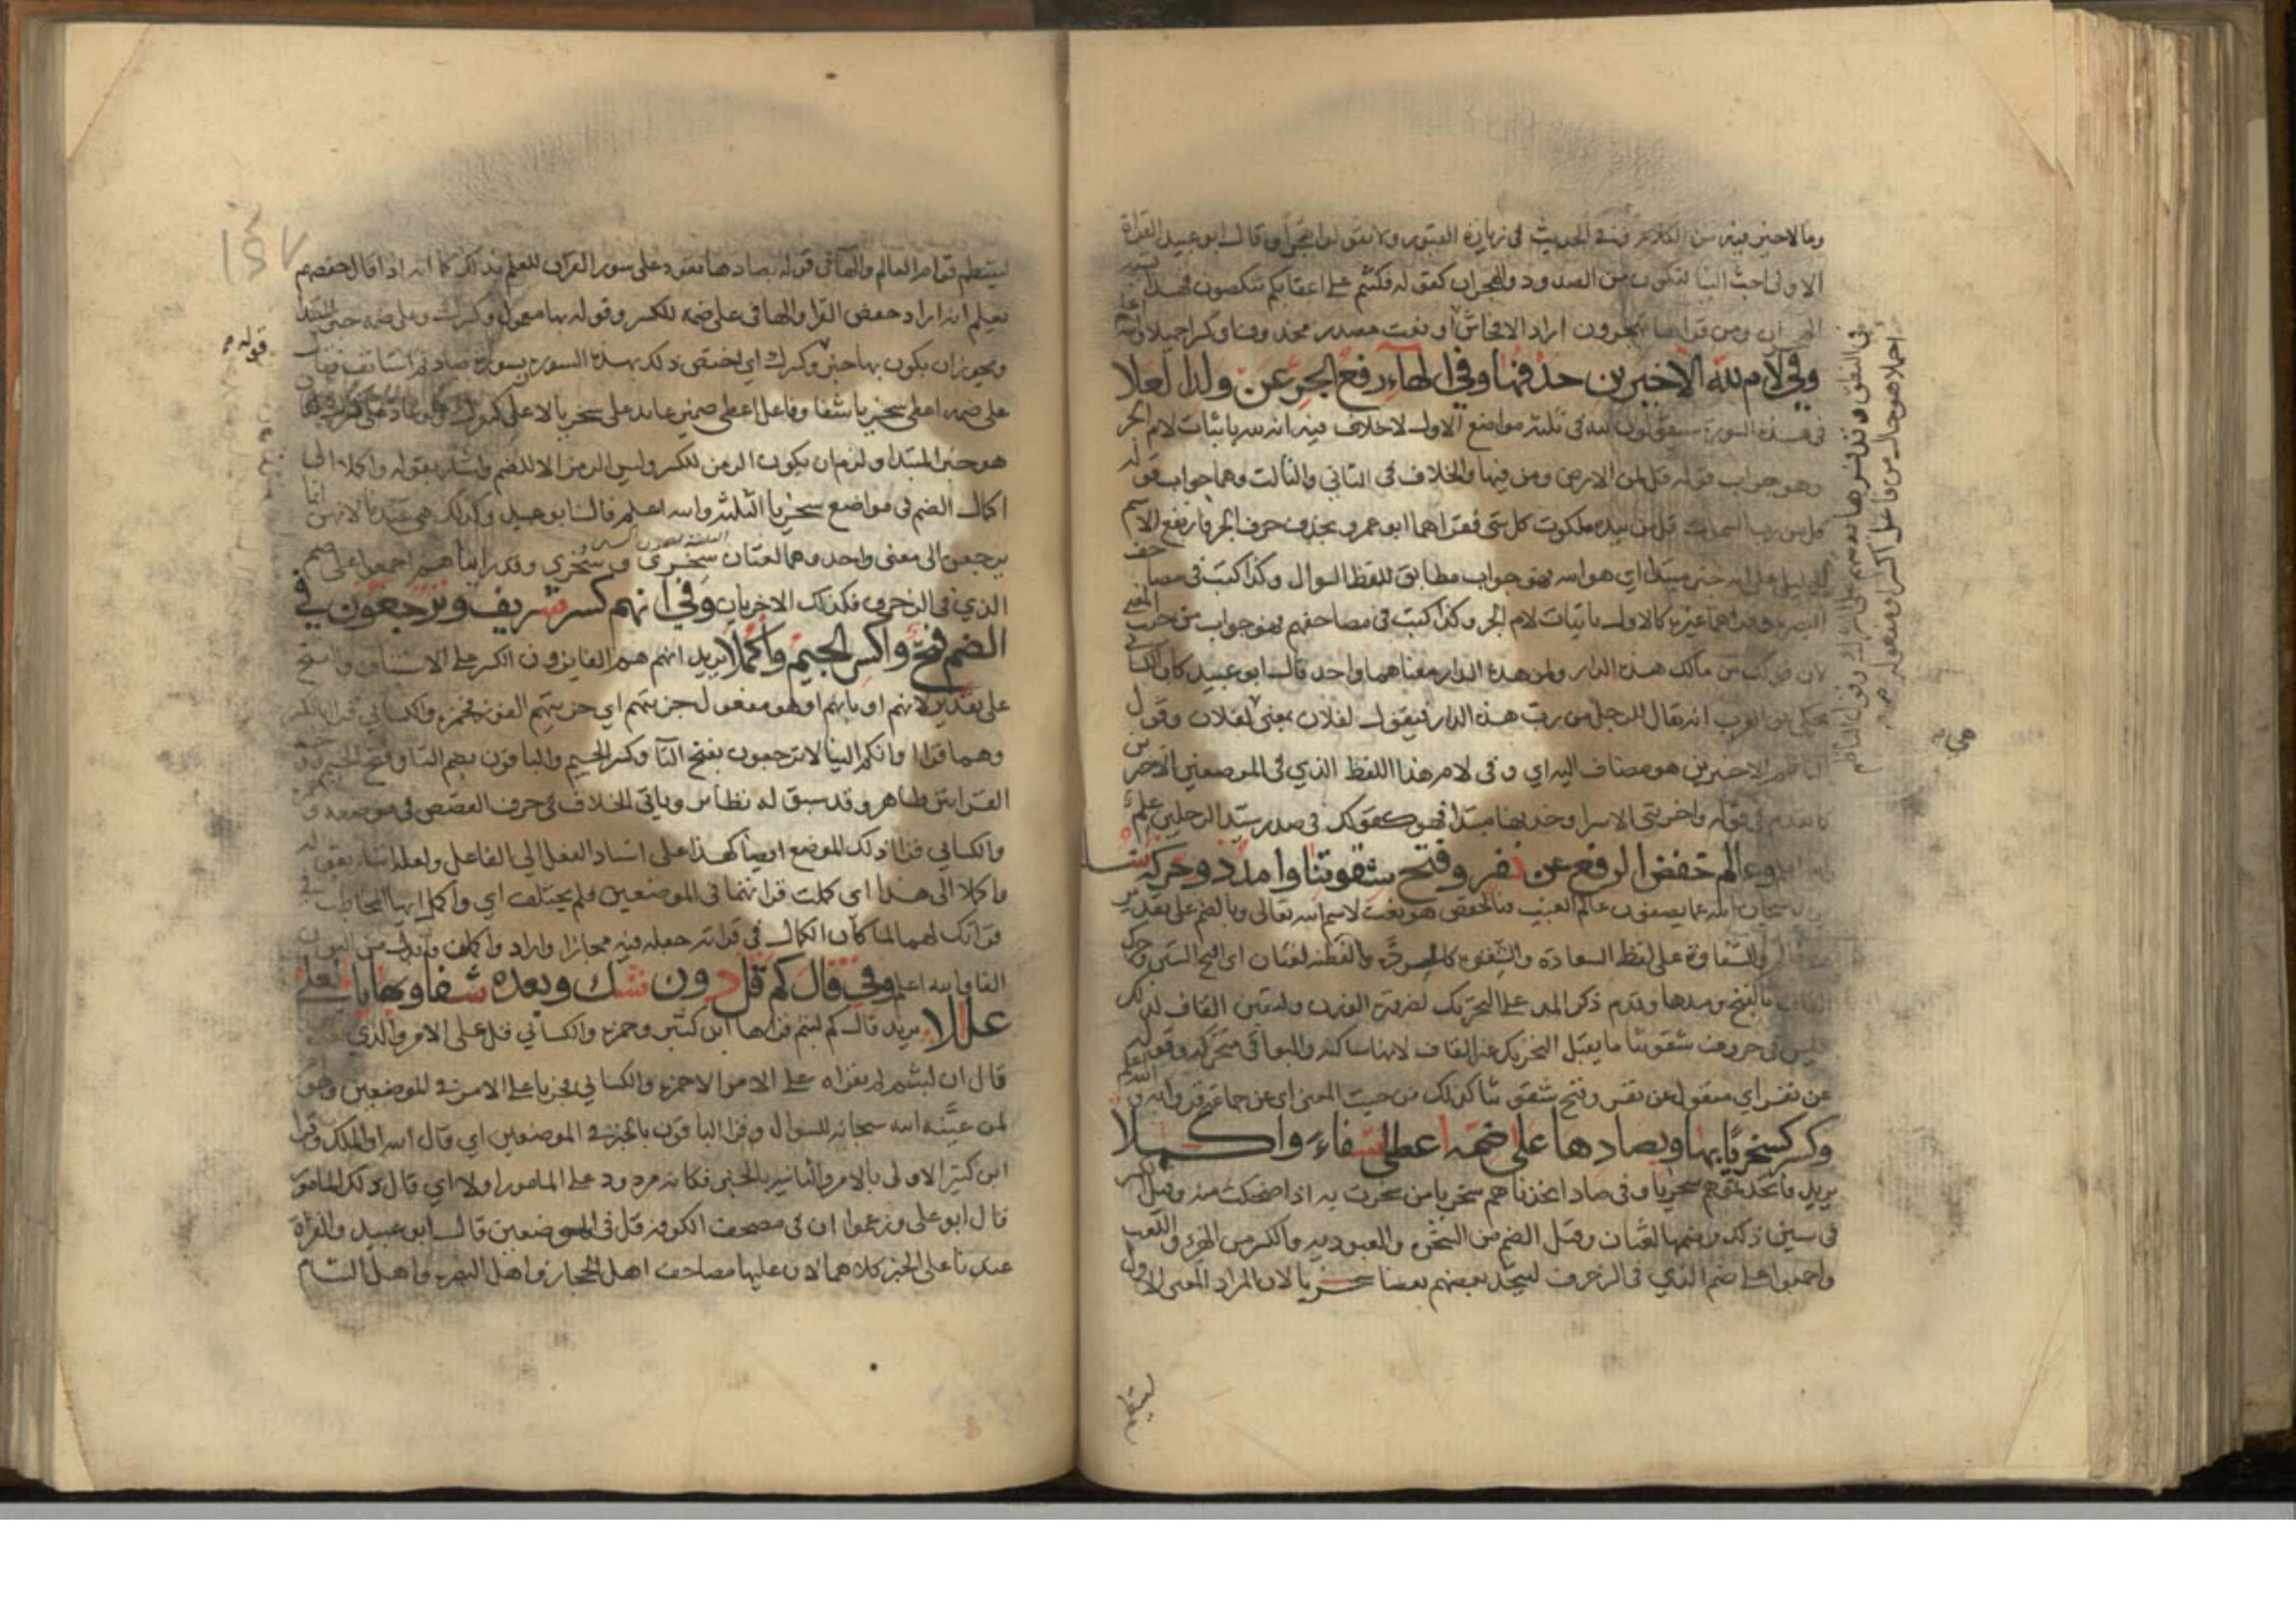 وما لا خير فيه من الكلام وفي الحديث في زيارة القبور ولا تقولوا هجرا وقال ابو عبيد القراة
الاولى احب الينا لتكون من الصدود والهجران كقوله فكنتم على اعقابكم تنكصون فهذا
ومن قراها تهجرون اراد الافحاش او نعت مصدر محذوف
وفي لام لله الاخيرين حذفها وفي الهاء رفع الجر عن ولد العلا
في هذه السورة سيقولون لله في ثلثة مواضع الاول لا خلاف فيه انه لله باثبات لام الجر
وهو جواب قوله قل لمن الارض ومن فيها والخلاف في الثاني والثالث وهما جواب قوله
قل من رب السموات قل من بيده ملكوت كل شي فقراهما ابو عمرو بحذف حرف الجر فارتفع الاسم
مبتدا اي هو الله فهو جواب مطابق للفظ السوال وكذا كتب في مصاحف
البصرة غيره كالاول باثبات لام الجر وكذا كتبت في مصاحفهم فهو جواب من حيث المعنى
لان قولك من مالك هذه الدار ولمن هذه الدار معناهما واحد قال ابو عبيد كان الكسا
يحكي عن العرب انه يقال للرجل من رب هذه الدار فيقول لفلان بمعنى لفلان وقول
الناظم الاخيرين هو مضاف اليه اي وفي لام هذا اللفظ الذي في الموضعين الاخيرين
ما تقدم في قوله واخريتي الاسرا وحذفها مبتدا فهو كقولك في صدر سيد الرجلين علم
وعالم خفض الرفع عن نفر وفتح شقوتنا وامدد وحركه
سبحان الله عما يصفون عالم الغيب فالخفض هو نعت لاسم الله تعالى وبالضم على تقدير
والشقاوة على لفظ السعادة والشقوة كالردة والفطنة لغتان اي افتح الشين وحرك
القاف بالفتح ومدها وقدم ذكر المد على التحريك لضرورة الوزن ولتعين القاف لذلك
فليس في حروف شقوتنا ما يقبل التحريك غير القاف لانها ساكنة والبواقي متحركة وقوله
عن نفر اي منقول عن نفر وفتح شقوتنا كذلك من حيث المعنى اي عن جماعة قرواه
وكسرك سخريا بها وبصادها على ضمه اعطى شفاء واكملا
يريد فاتخذتموهم سخريا وفي صاد اتخذناهم سخريا من سخرت به اذا ضحكت منه وقيل
في سين ذلك وضمها لغتان وقيل الضم من السخرة والعبودية والكسر من الهزء واللعب
واجمعوا على ضم الذي في الزخرف ليتخذ بعضهم بعضا سخريا لان المراد المعنى الاول
ليستقيم
ليستقيم قوام العالم والها في قوله بصادها تعود على سور القران للعلم بذلك كما انه اذا قال حفصهم
يعلم انه اراد حفص القرا والها في على ضمه للكسر وقوله بها معمول وكسرك وعلى ضمه خبر المبتدا
ويجوز ان يكون بها خبر وكسرك اي اختص ذلك بهذه السورة وبسورة صاد ثم استانف فقال
على ضمه اعطى سخريا شفا وفاعل اعطى ضمير عايد على سخريا لا على كسرك
هو خبر المبتدا ولزم ان يكون الرمز للكسر وليس الرمز الا للضم واشار بقوله واكملا الى
اكمال الضم في مواضع سخريا الثلثة والله اعلم قال ابو عبيد وكذلك هي عندنا لانهن انما
يرجعن الى معنى واحد وهما لغتان سخري وسخري وقد راينا هم اجمعوا على ضم
الذي في الزخرف فكذلك الاخريان وفي انهم كسر شريف وترجعون في
الضم فتح واكسر الجيم واكملا يريد انهم هم الفايزون الكسر على الاستيناف والفتح
على تقدير لانهم او بانهم او هو مفعول جزيتهم اي جزيتهم الفوز فحمزة والكسائي قراا بالكسر
وهما قراا وانكم الينا لا ترجعون بفتح التا وكسر الجيم والباقون بضم التا وفتح الجيم
القراتين ظاهر وقد سبق له نظاير وياتي الخلاف في حرف القصص في موضعه
والكسائي قراا ذلك الموضع ايضا كهذا على اسناد الفعل الى الفاعل ولعله اشار بقوله
واكملا الى هذا اي كملت قراتهما في الموضعين فلم يختلف اي واكمل ايها المخاطب
قراتك لهما لما كان الكمال في قراته جعله فيه مجازا واراد واكملن
الفا والله اعلم وفي قال كم قل دون شك وبعده شفا وبها ياء لعلي
عللا يريد قال كم لبثتم قراها ابن كثير وحمزة والكسائي قل على الامر والذي
قال ان لبثتم لم يقراه على الامر الا حمزة والكسائي فجريا على الامر في الموضعين وهو
لمن عينه الله سبحانه للسوال وقرا الباقون بالخبر في الموضعين اي قال الله او الملك وقرا
ابن كثير الاولى بالامر والثانية بالخبر فكانه مردود على المامور اولا اي قال ذلك المامور
قال ابو علي وزعموا ان في مصحف الكوفة قل في الموضعين قال ابو عبيد والقراة
عندنا على الخبر كلاهما لان عليها مصاحف اهل الحجاز واهل البصرة واهل الشام
قوله